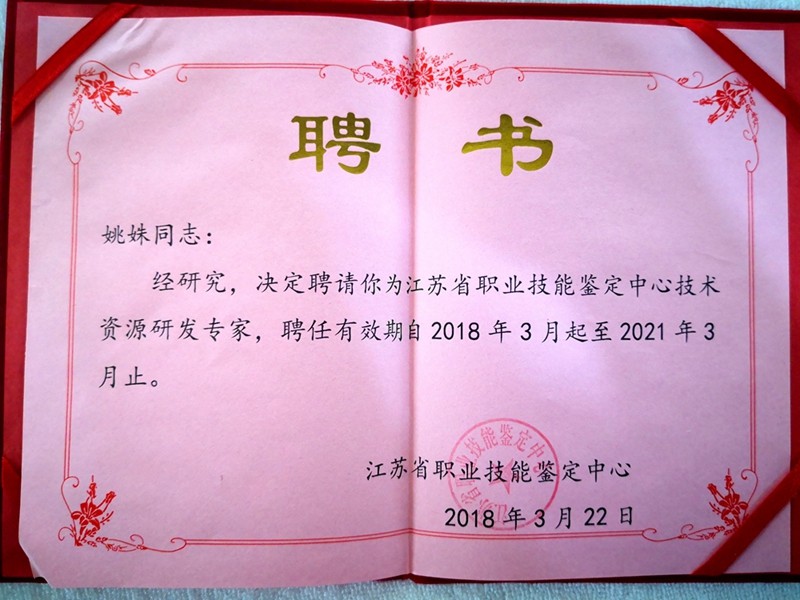 聘书
姚姝同志：
经研究，决定聘请你为江苏省职业技能鉴定中心技术
资源研发专家，聘任有效期自2018年3月起至2021年3
月止。
江苏省职业技能鉴定中心
江苏省职业技能鉴定中心
2018年3月22日